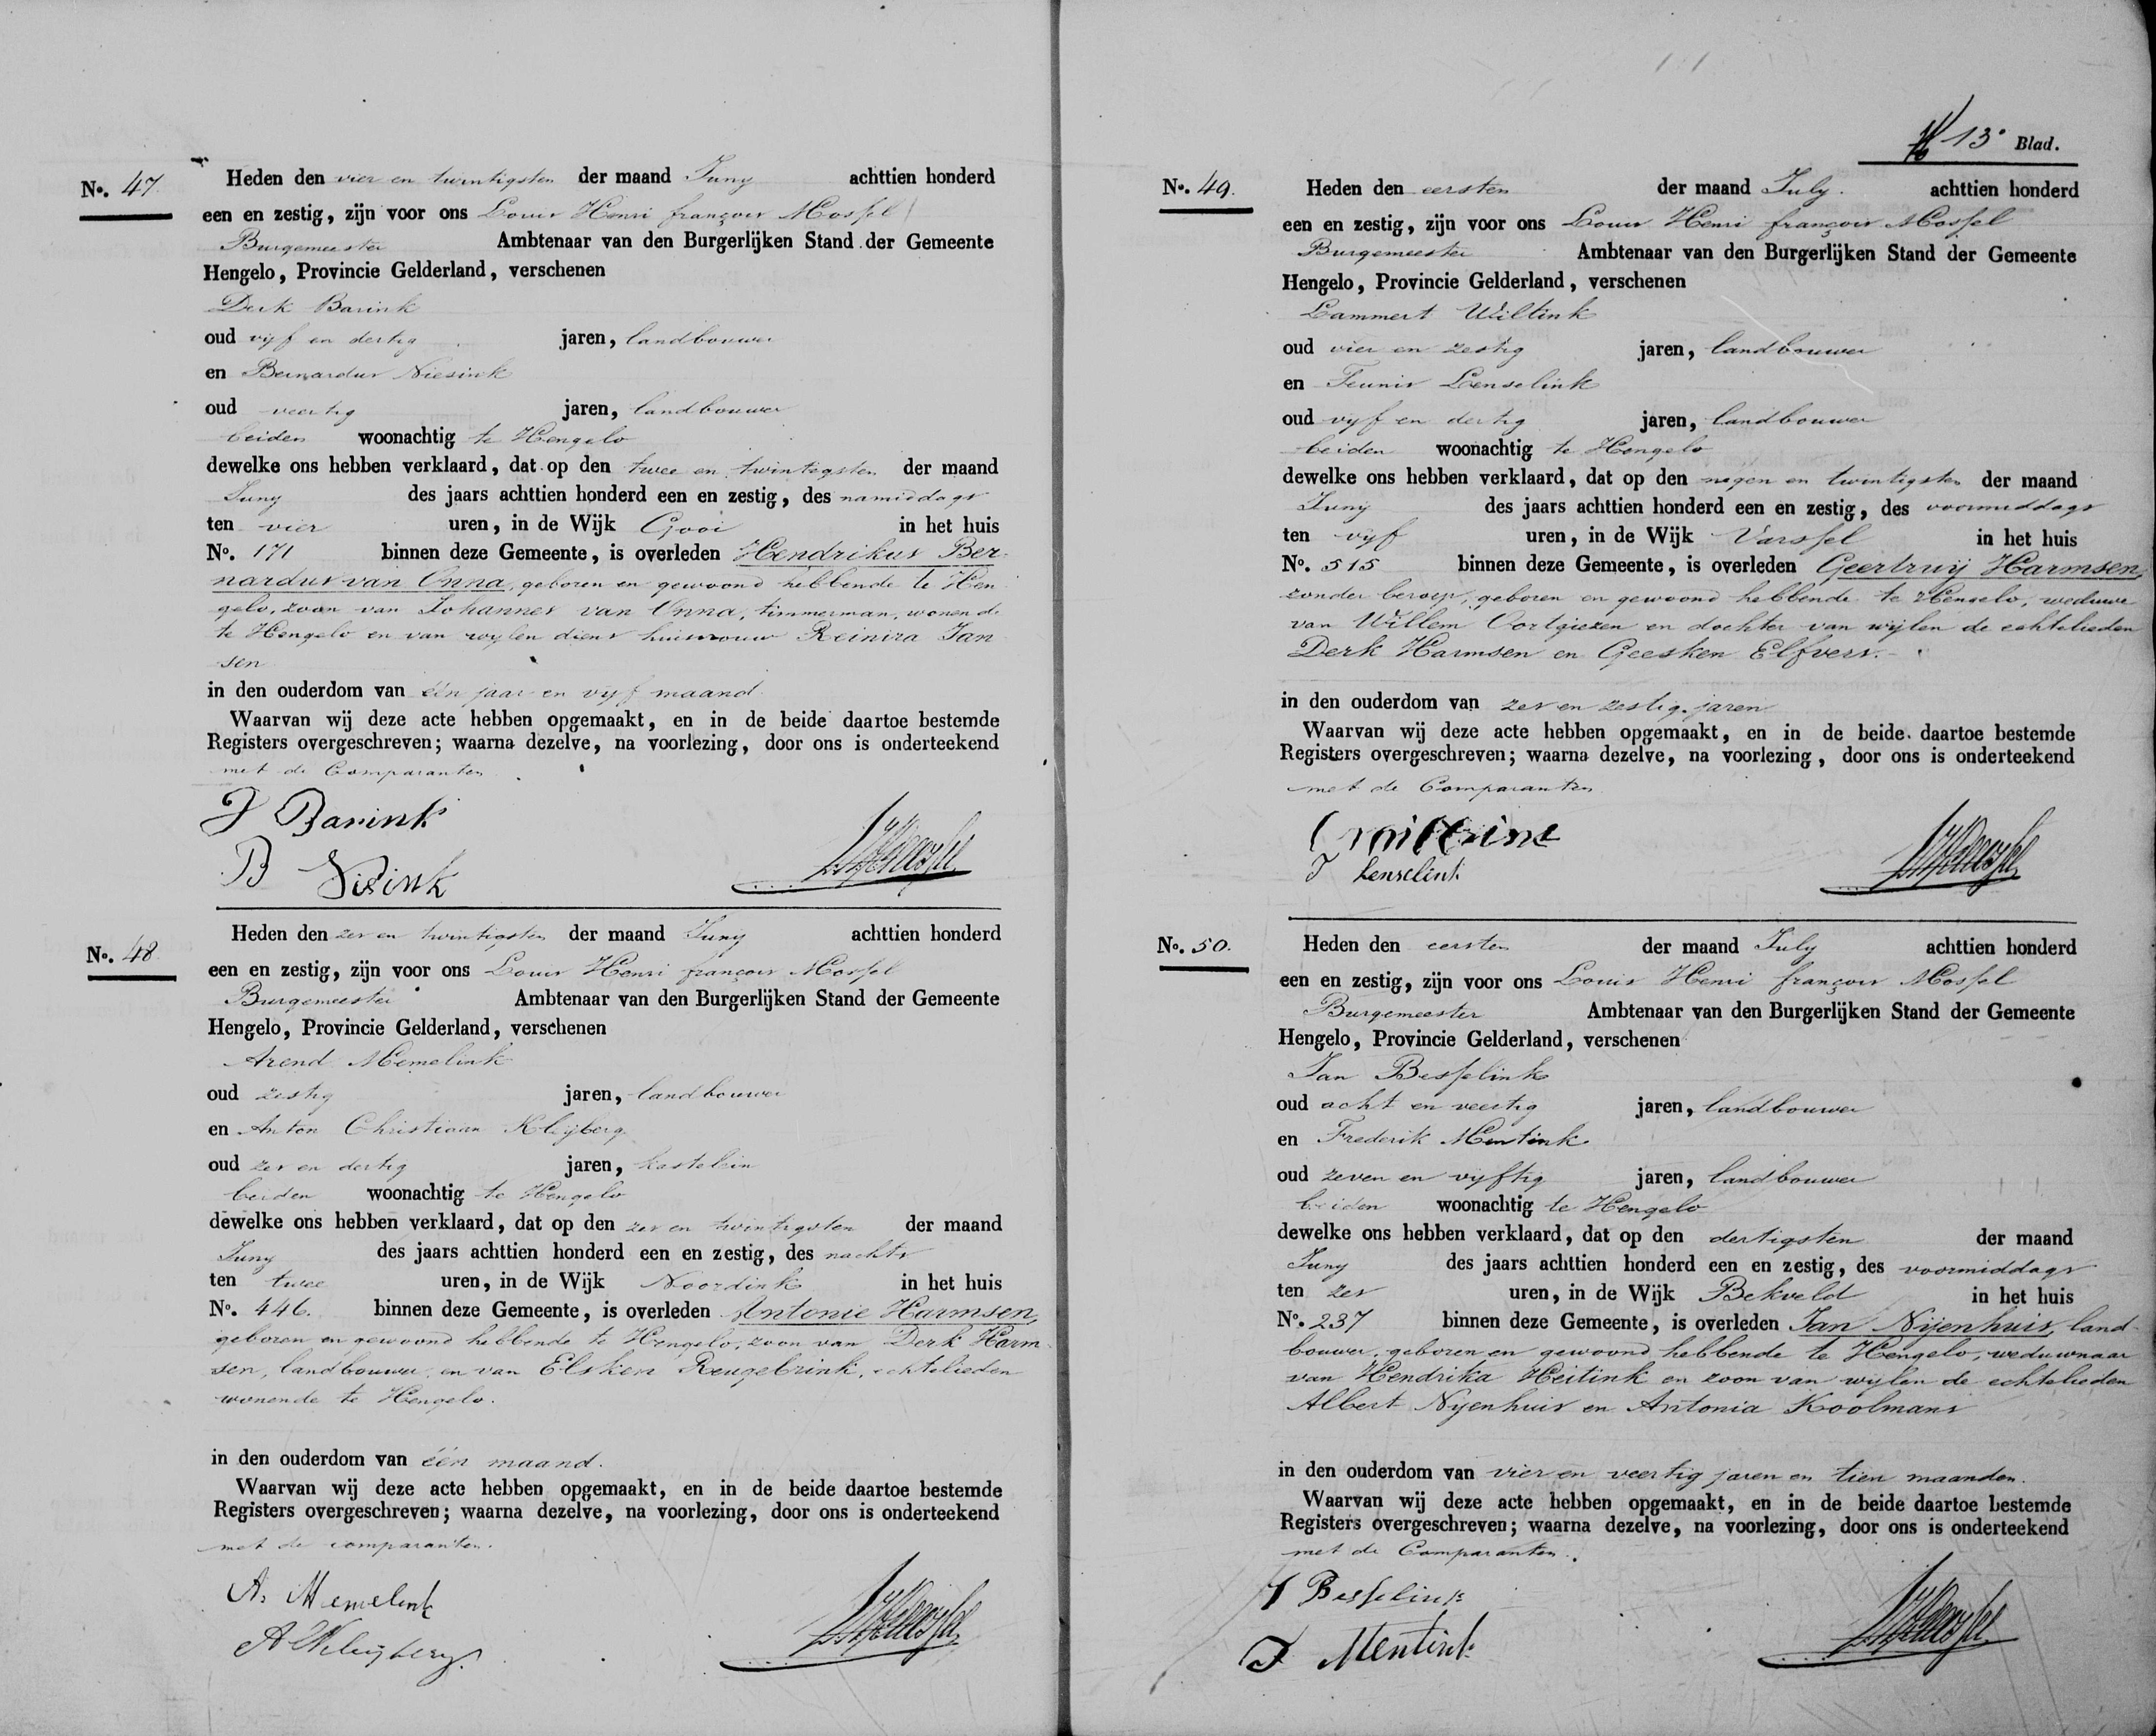 No. 47.
Heden den vier en twintigsten der maand Juny achttien honderd
een en zestig, zijn voor ons Louis Henri françois Mossel
Burgemeester Ambtenaar van den Burgerlijken Stand der Gemeente
Hengelo, Provincie Gelderland, verschenen
Derk Barink
oud vijf en dertig jaren, landbouwer
en Bernardus Niesink
oud veertig jaren, landbouwer
beiden woonachtig te Hengelo
dewelke ons hebben verklaard, dat op den twee en twintigsten der maand
Juny des jaars achttien honderd een en zestig, des namiddags
ten vier uren, in de Wijk Gooi in het huis
No. 171 binnen deze Gemeente, is overleden Hendrikus Ber-
nardus van Onna, geboren en gewoond hebbende te Hen
gelo, zoon van Johannes van Onna, timmerman, wonende
te Hengelo en van wylen diens huisvrouw Reinira Jan
sen
in den ouderdom van één jaar en vyf maand.
Waarvan wij deze acte hebben opgemaakt, en in de beide daartoe bestemde
Registers overgeschreven; waarna dezelve, na voorlezing, door ons is onderteekend
met de Comparanten
D Barink
B Nisink
LHFMossel
No. 48
Heden den zes en twintigsten der maand Juny achttien honderd
een en zestig, zijn voor ons Louis Henri françois Mossel
Burgemeester Ambtenaar van den Burgerlijken Stand der Gemeente
Hengelo, Provincie Gelderland, verschenen
Arend Memelink
oud zestig jaren, landbouwer
en Anton Christiaan Kleyberg
oud zes en dertig jaren, kastelein
beiden woonachtig te Hengelo
dewelke ons hebben verklaard, dat op den zes en twintigsten der maand
Juny des jaars achttien honderd een en zestig, des nachts
ten twee uren, in de Wijk Noordink in het huis
No. 446. binnen deze Gemeente, is overleden Antonie Harmsen,
geboren en gewoond hebbende te Hengelo, zoon van Derk Harm
sen, landbouwer, en van Elsken Reugebrink, echtelieden
wonende te Hengelo.
in den ouderdom van één maand.
Waarvan wij deze acte hebben opgemaakt, en in de beide daartoe bestemde
Registers overgeschreven; waarna dezelve, na voorlezing, door ons is onderteekend
met de comparanten.
A. Memelink
A C Kleyberg.
LHFMossel
13e Blad.
No. 49.
Heden den eersten der maand July. achttien honderd
een en zestig, zijn voor ons Louis Henri françois Mossel
Burgemeester Ambtenaar van den Burgerlijken Stand der Gemeente
Hengelo, Provincie Gelderland, verschenen
Lammert Wiltink
oud vier en zestig jaren, landbouwer
en Teunis Lenselink
oud vyf en dertig jaren, landbouwer
beiden woonachtig te Hengelo
dewelke ons hebben verklaard, dat op den negen en twintigsten der maand
Juny des jaars achttien honderd een en zestig, des voormiddags
ten vyf uren, in de Wijk Varssel in het huis
No. 515 binnen deze Gemeente, is overleden Geertruy Harmsen,
zonder beroep, geboren en gewoond hebbende te Hengelo, weduwe
van Willem Oortgiezen en dochter van wijlen de echtelieden
Derk Harmsen en Geesken Elfvers.
in den ouderdom van zes en zestig jaren
Waarvan wij deze acte hebben opgemaakt, en in de beide daartoe bestemde
Registers overgeschreven; waarna dezelve, na voorlezing, door ons is onderteekend
met de Comparanten
T Lenselink
LHFMossel
No. 50.
Heden den eersten der maand July achttien honderd
een en zestig, zijn voor ons Louis Henri françois Mossel
Burgemeester Ambtenaar van den Burgerlijken Stand der Gemeente
Hengelo, Provincie Gelderland, verschenen
Jan Besselink
oud acht en veertig jaren, landbouwer
en Frederik Mentink
oud zeven en vyftig jaren, landbouwer
beiden woonachtig te Hengelo
dewelke ons hebben verklaard, dat op den dertigsten der maand
Juny des jaars achttien honderd een en zestig, des voormiddags
ten zes uren, in de Wijk Bekveld in het huis
No. 237 binnen deze Gemeente, is overleden Jan Nijenhuis, land-
bouwer, geboren en gewoond hebbende te Hengelo, weduwnaar
van Hendrika Heitink en zoon van wylen de echtelieden
Albert Nyenhuis en Antonia Koolmans
in den ouderdom van vier en veertig jaren en tien maanden.
Waarvan wij deze acte hebben opgemaakt, en in de beide daartoe bestemde
Registers overgeschreven; waarna dezelve, na voorlezing, door ons is onderteekend
met de Comparanten.
J Besselink
F Mentink
LHFMossel